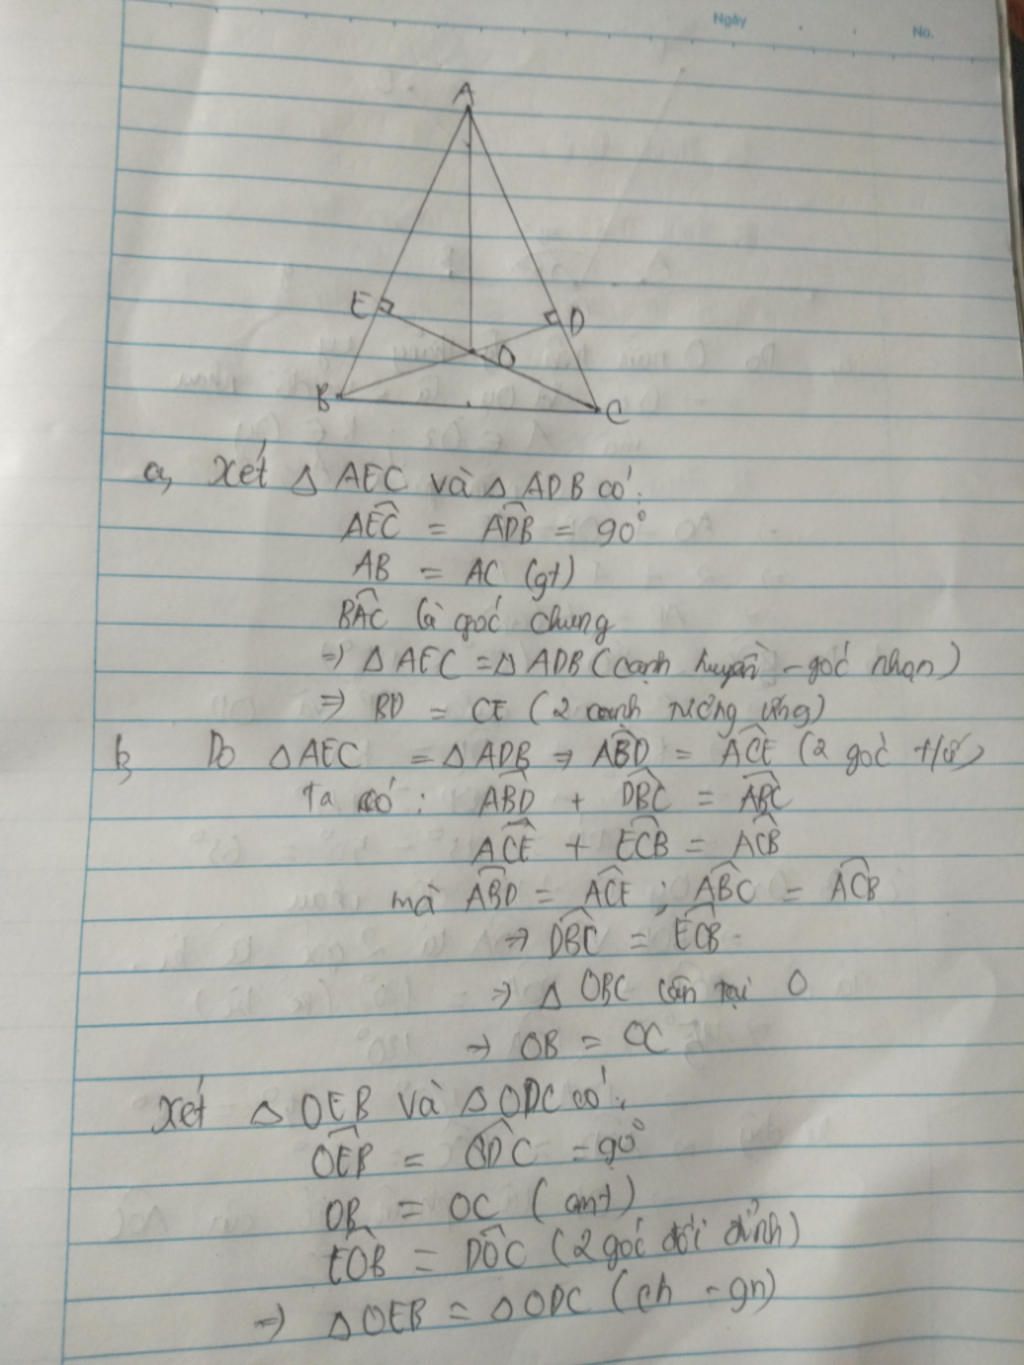 Ngày
No.
A
E
D
O
B
C
a, Xét △ AEC và △ ADB có:
AEC = ADB = 90°
AB = AC (gt)
BAC là góc chung
=> △ AEC = △ ADB (cạnh huyền - góc nhọn)
=> BD = CE (2 cạnh tương ứng)
b, Do △ AEC = △ ADB => ABD = ACE (2 góc t/ứ)
Ta có: ABD + DBC = ABC
ACE + ECB = ACB
mà ABD = ACE ; ABC = ACB
=> DBC = ECB
=> △ OBC cân tại O
=> OB = OC
Xét △ OEB và △ ODC có:
OEB = ODC = 90°
OB = OC (cmt)
EOB = DOC (2 góc đối đỉnh)
=> △ OEB = △ ODC (ch - gn)